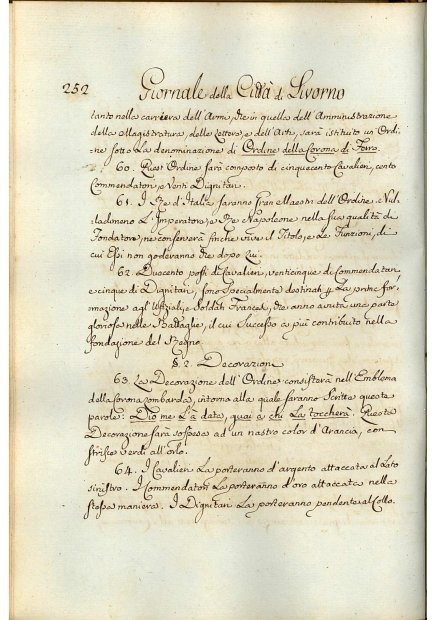 252 Giornale della Città di Livorno
tanto nella carriera dell'Armi, che in quella dell'Amministrazione
della Magistratura, delle Lettere, e dell'Arti, sarà istituito un Ordi:
ne sotto La denominazione di Ordine della Corona di Ferro.
60. Quest'Ordine sarà composto di cinquecento Cavalieri, cento
Commendatori, e Venti Dignitari.
61. I Re d'Italia saranno Gran Maestri dell'Ordine. Nul:
ladimeno L'Imperatore, e Re Napoleone nella sua qualità di
Fondatore, ne conserverà finche vive il Titolo, e Le Funzioni, di
cui Essi non goderanno che dopo Lui.
62. Duecento posti di Cavalieri, venticinque di Commendatari,
e cinque di Dignitari, sono specialmente destinati p La prime for:
mazione agl'Ufiziali, e Soldati Francesi, che anno avuta una parte
gloriosa nelle Battaglie, il cui successo a più contribuito nella
fondazione del Regno.
§. 2. Decorazioni
63. La Decorazione dell'Ordine consisterà nell'Emblema
della Corona Lombarda, intorno alla quale saranno Scritte queste
parole: Dio me L'à data, guai a chi La toccherà. Questa
Decorazione sarà sospesa ad un nastro color d'Arancia, con
striscie verdi all'orlo.
64. I Cavalieri La porteranno d'argento attaccata al Lato
sinistro. I Commendatori La porteranno d'oro attaccata nella
stessa maniera. I Dignitari La porteranno pendente al Collo.